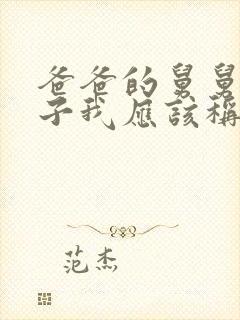 爸爸的舅舅
子我應該稱
范杰